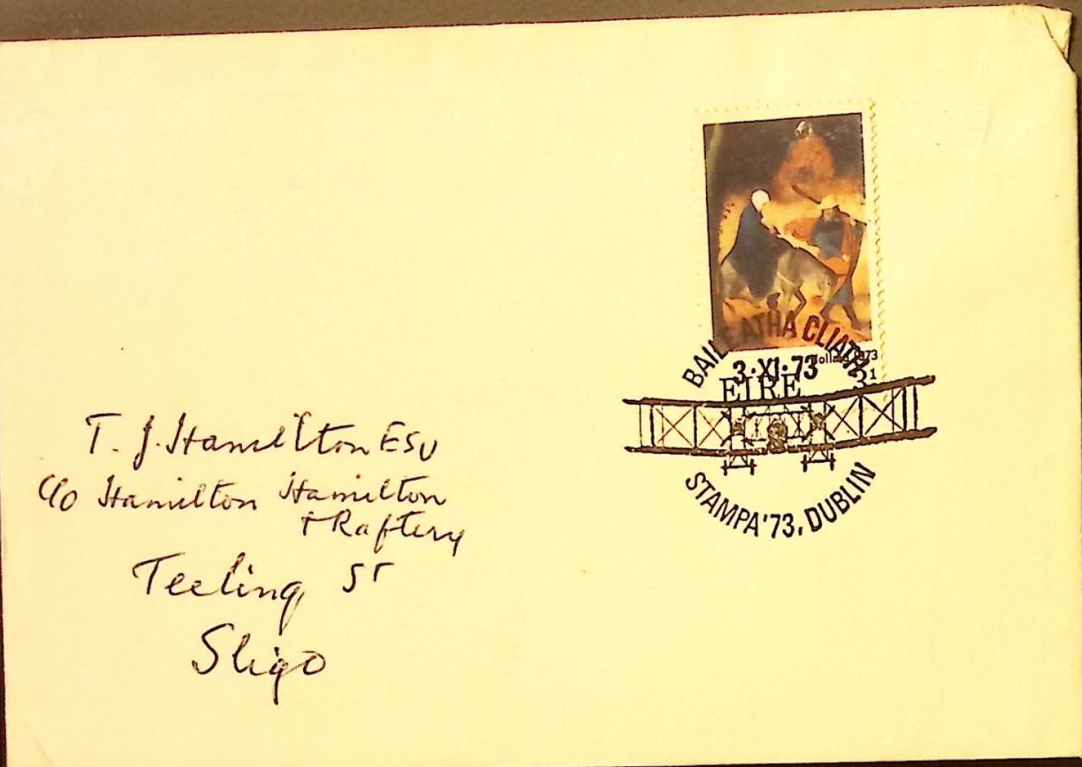 BAILE ATHA CLIATH
3·XI·73
1973
EIRE 3½
STAMPA '73, DUBLIN
T. J. Hamilton ESQ
C/o Hamilton Hamilton
+ Raftery
Teeling ST
Sligo